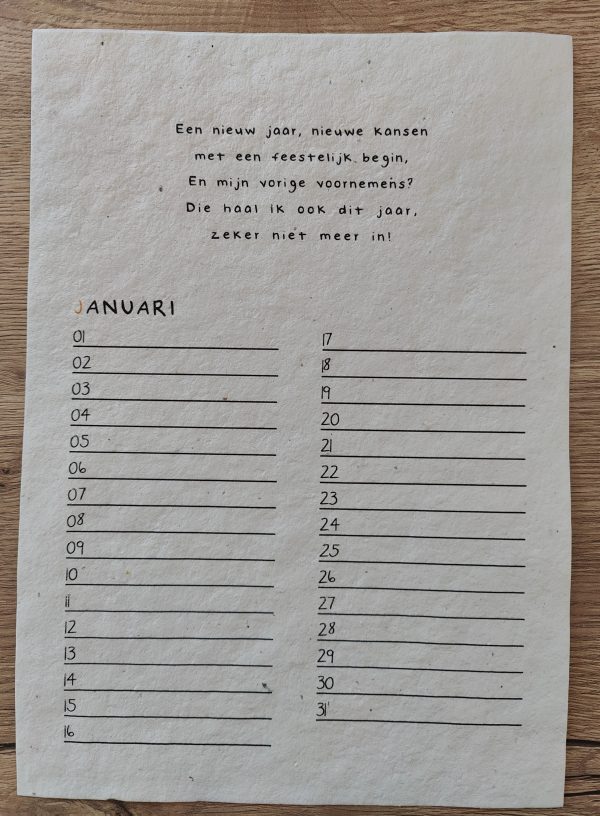 Een nieuw jaar, nieuwe kansen
met een feestelijk begin,
En mijn vorige voornemens?
Die haal ik ook dit jaar,
zeker niet meer in!
JANUARI
01
02
03
04
05
06
07
08
09
10
11
12
13
14
15
16
17
18
19
20
21
22
23
24
25
26
27
28
29
30
31